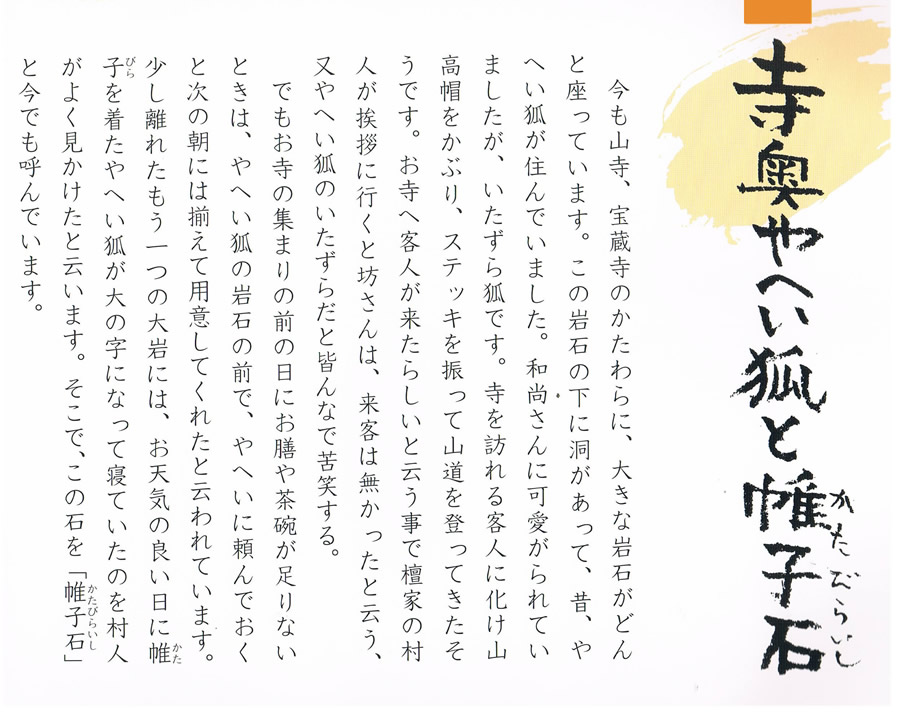 寺奥やへい狐と帷子石
かたびらいし
今も山寺、宝蔵寺のかたわらに、大きな岩石がどん
と座っています。この岩石の下に洞があって、昔、や
へい狐が住んでいました。和尚さんに可愛がられてい
ましたが、いたずら狐です。寺を訪れる客人に化け山
高帽をかぶり、ステッキを振って山道を登ってきたそ
うです。お寺へ客人が来たらしいと云う事で檀家の村
人が挨拶に行くと坊さんは、来客は無かったと云う、
又やへい狐のいたずらだと皆んなで苦笑する。
でもお寺の集まりの前の日にお膳や茶碗が足りない
ときは、やへい狐の岩石の前で、やへいに頼んでおく
と次の朝には揃えて用意してくれたと云われています。
少し離れたもう一つの大岩には、お天気の良い日に帷
かた
子を着たやへい狐が大の字になって寝ていたのを村人
びら
がよく見かけたと云います。そこで、この石を「帷子石」
かたびらいし
と今でも呼んでいます。